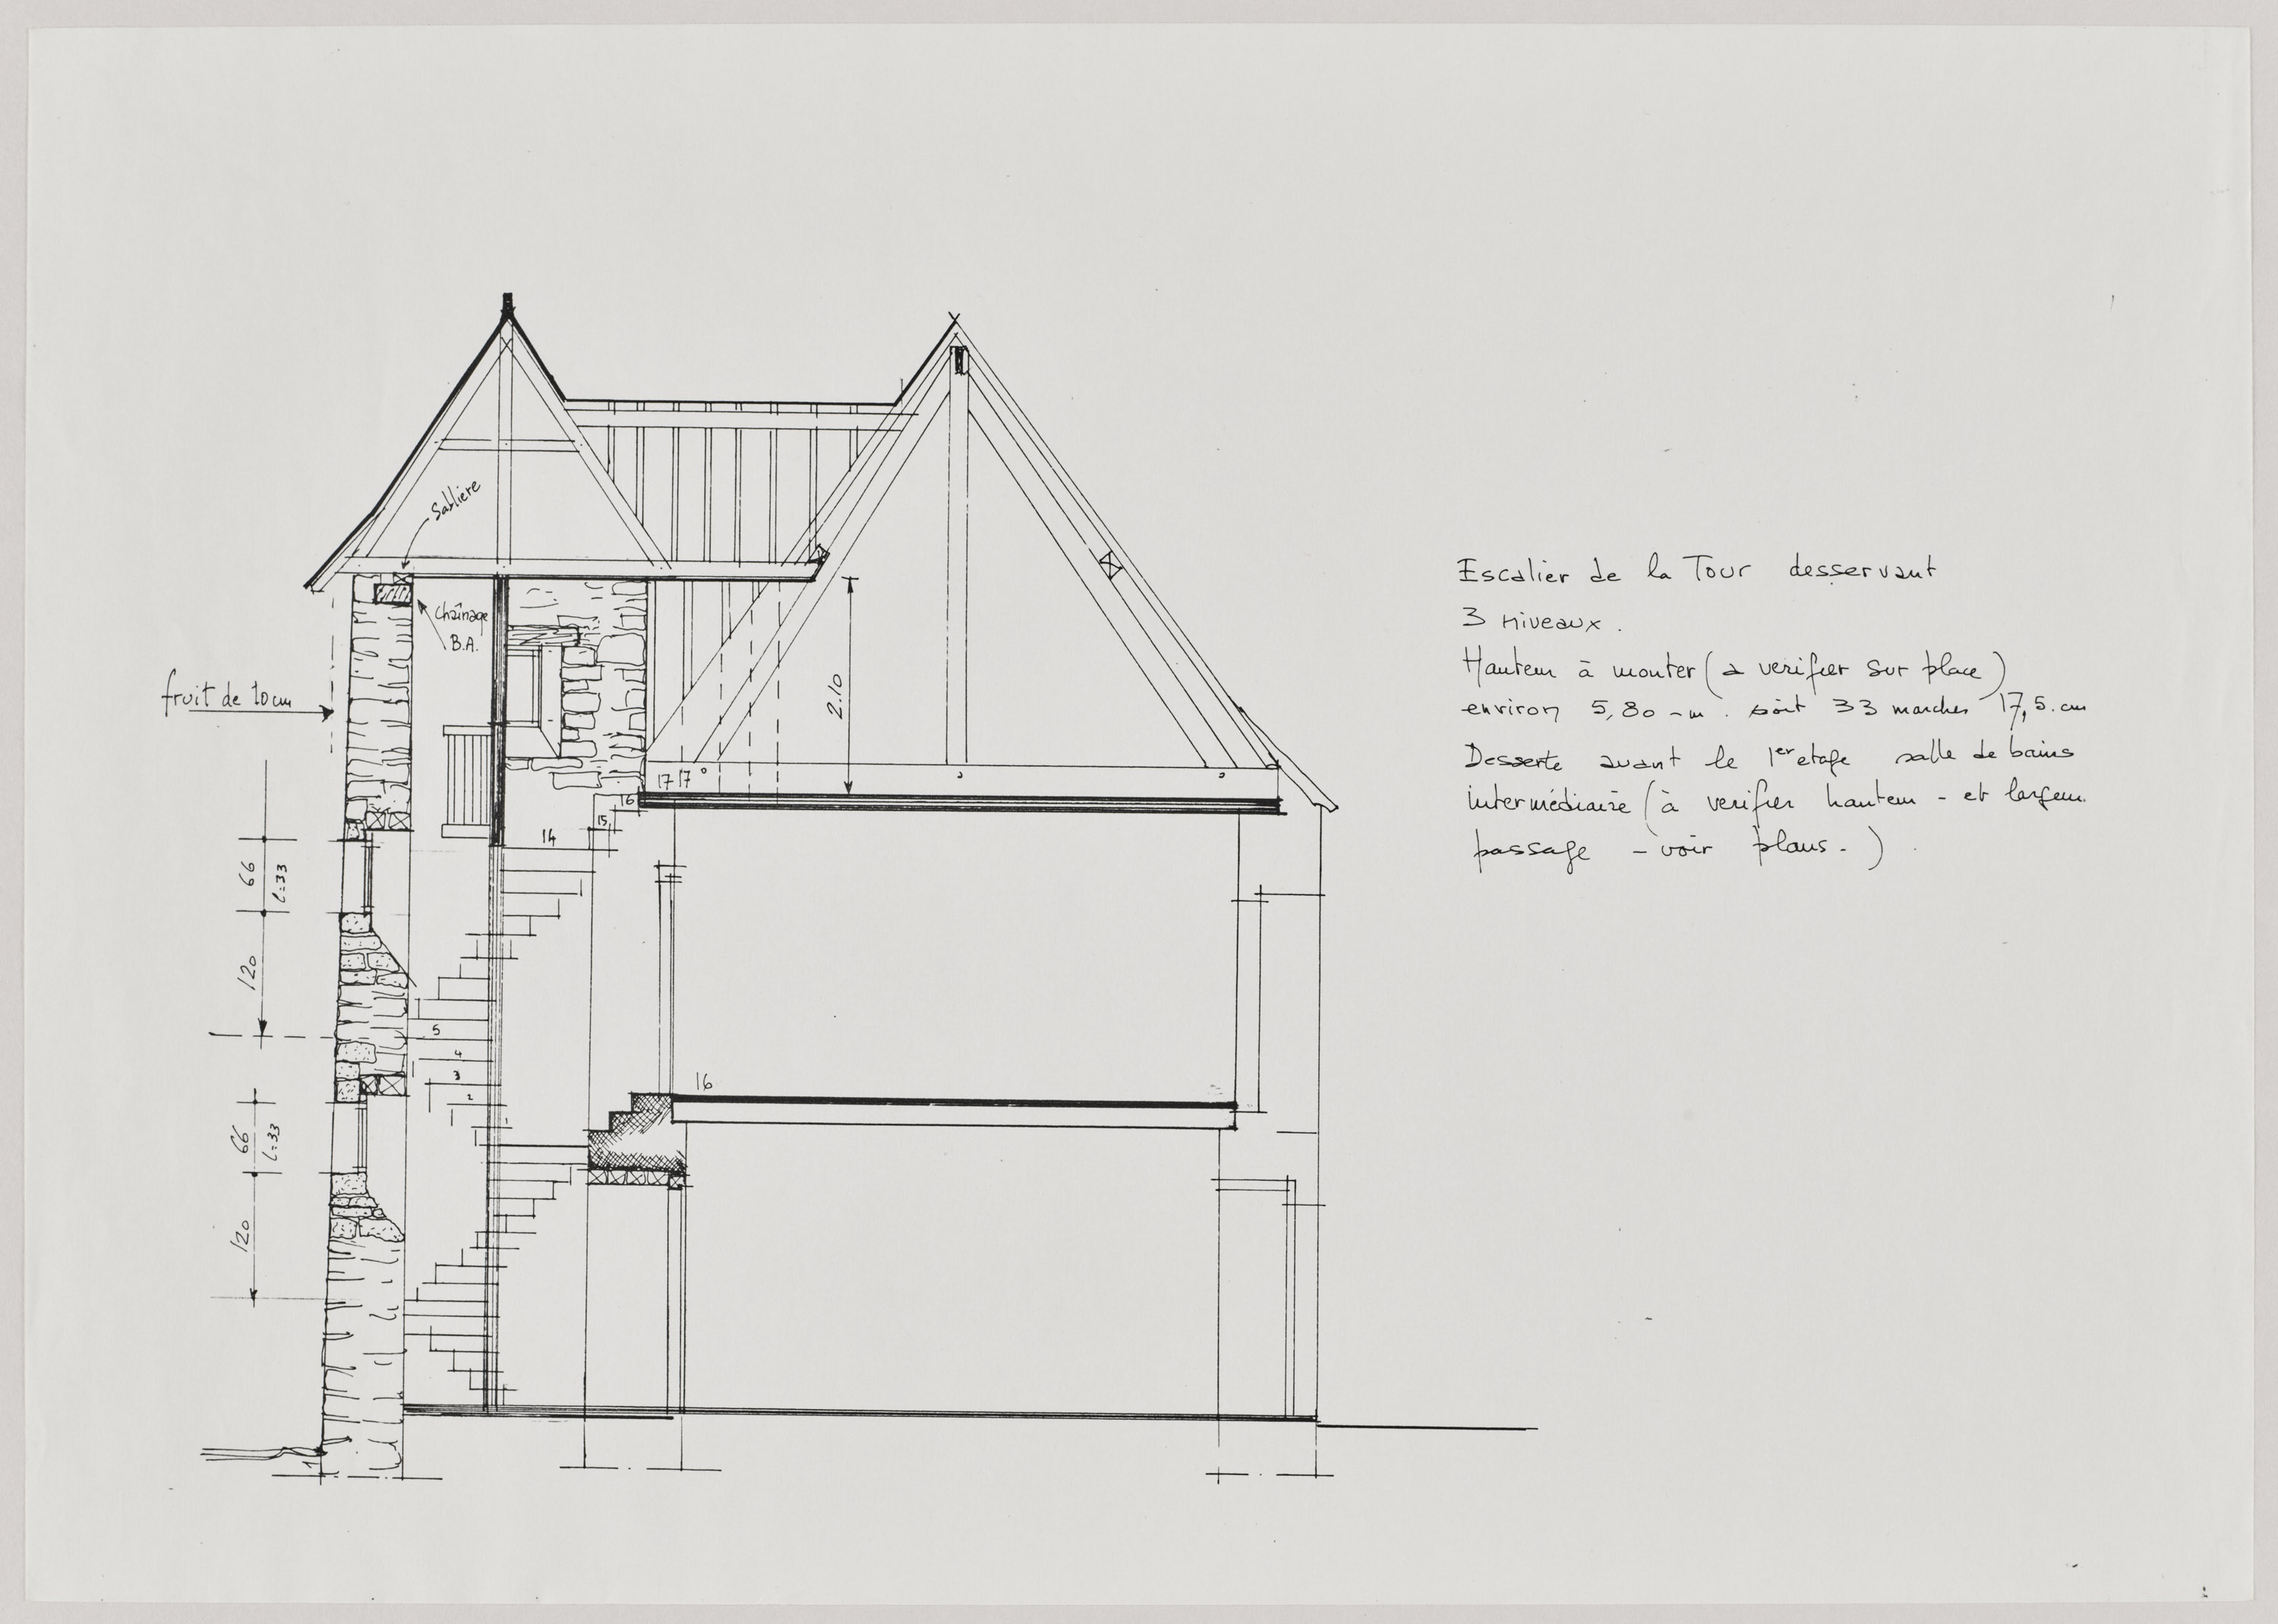 Sablière
Chaînage
B.A.
fruit de 10 cm
2.10
17 17
16
15
14
66
l=33
120
5
4
3
2
1
16
66
l=33
120
Escalier de la Tour desservant
3 niveaux.
Hauteur à monter (a verifier sur place)
environ 5,80 - m. soit 33 marches 17,5. cm
Desserte avant le 1er etage salle de bains
intermédiaire (à verifier hauteur - et largeur
passage - voir plans - )